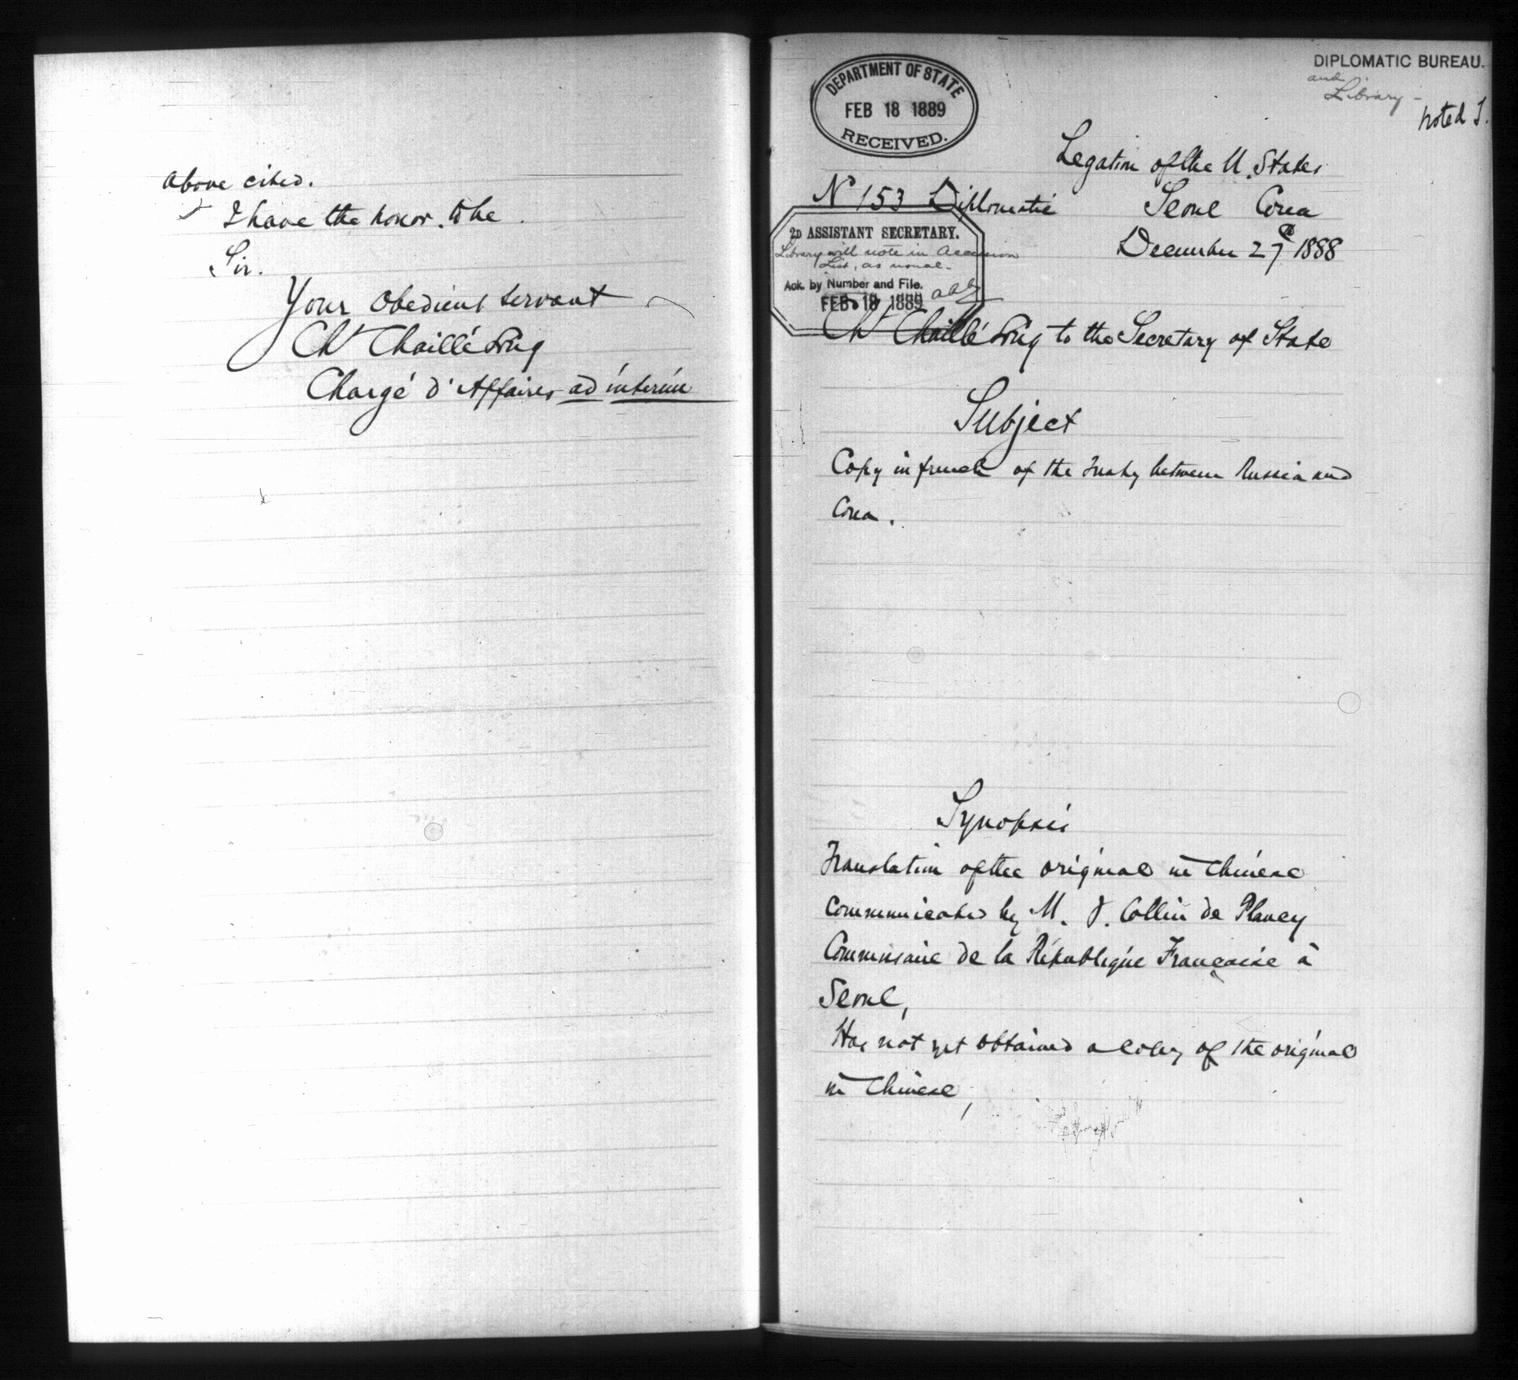 above cited.
I have the honor to be
Sir.
Your obedient servant
Ch^s Chaillé Long
Chargé d'Affaires ad interim
DIPLOMATIC BUREAU.
and
Library -
noted
DEPARTMENT OF STATE
FEB 18 1889
RECEIVED.
Legation of the U. States
Nº 153 Diplomatic
Seoul Corea
December 27 1888
2D ASSISTANT SECRETARY.
Library will note in Accession
List, as usual.
Ack. by Number and File.
FEB 18 1889
Ch^s Chaillé Long to the Secretary of State
Subject
Copy in french of the treaty between Russia and
Corea.
Synopsis
Translation of the original in Chinese
communicated by M. V. Collin de Plancy
Commissaire de la République Française à
Seoul,
Has not yet obtained a copy of the original
in Chinese,